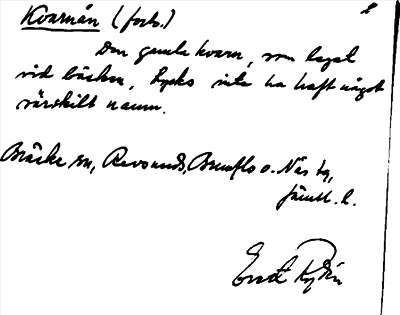 Kvarnån (forts.) 2
Den gamla kvarn, som legat
vid bäcken, tycks inte ha haft något
särskilt namn.
Bräcke sn, Revsunds, Brunflo o. Näs tg,
Jämtl. l.
Ernst